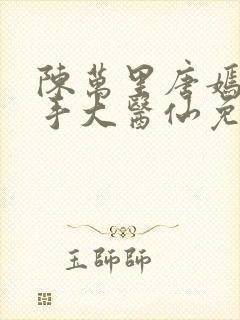 陳萬里唐嫣
手大醫仙免
玉師師